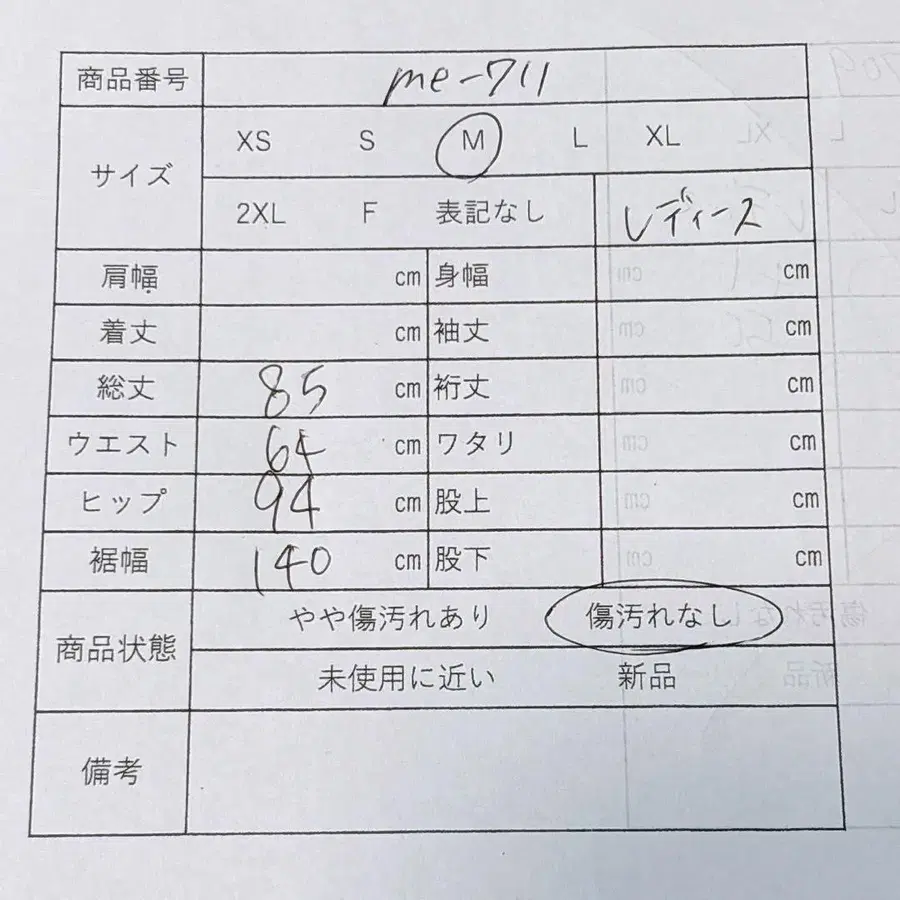 商品番号 me-711
サイズ XS S M L XL
2XL F 表記なし レディース
肩幅 cm 身幅 cm
着丈 cm 袖丈 cm
総丈 85 cm 裄丈 cm
ウエスト 64 cm ワタリ cm
ヒップ 94 cm 股上 cm
裾幅 140 cm 股下 cm
商品状態 やや傷汚れあり 傷汚れなし
未使用に近い 新品
備考